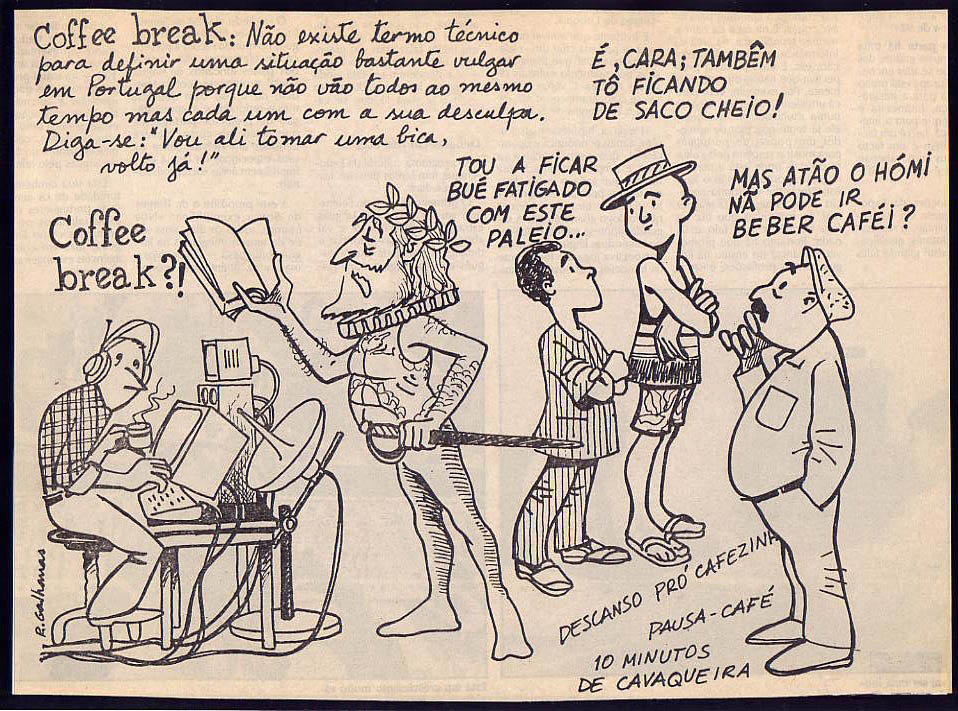 Coffee break: Não existe termo técnico
para definir uma situação bastante vulgar
em Portugal porque não vão todos ao mesmo
tempo mas cada um com a sua desculpa.
Diga-se: "Vou ali tomar uma bica,
volto já!"
É, CARA; TAMBÊM
TÔ FICANDO
DE SACO CHEIO!
TOU A FICAR
BUÉ FATIGADO
COM ESTE
PALEIO...
MAS ATÃO O HÓMI
NÃ PODE IR
BEBER CAFÉI?
Coffee
break?!
DESCANSO PRÓ CAFEZINH
PAUSA-CAFÉ
10 MINUTOS
DE CAVAQUEIRA
R. Galhanas